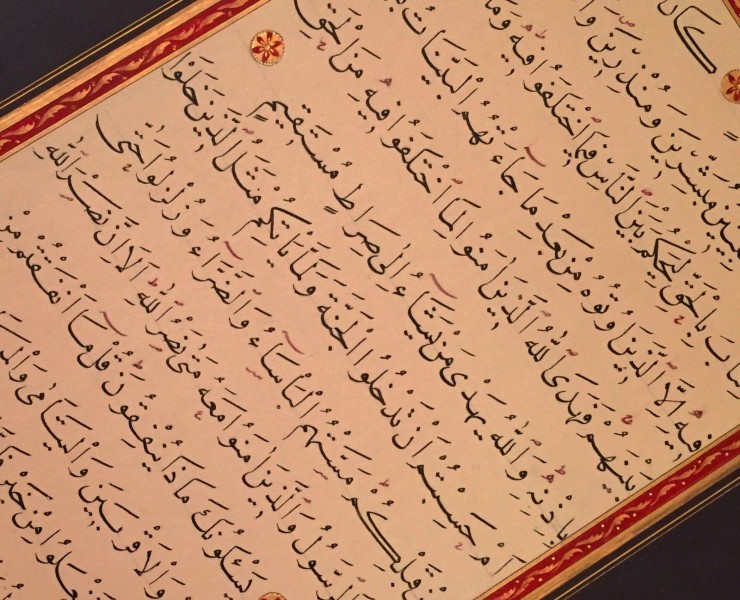 كَانَ
مُبَشِّرِينَ وَمُنْذِرِينَ
بِالْحَقِّ لِيَحْكُمَ بَيْنَ النَّاسِ فِيمَا اخْتَلَفُوا فِيهِ وَمَا
فِيهِ اِلَّا الَّذِينَ اُوتُوهُ مِنْ بَعْدِ مَا جَاءَتْهُمُ الْبَيِّنَاتُ
بَيْنَهُمْ فَهَدَى اللّٰهُ الَّذِينَ اٰمَنُوا لِمَا اخْتَلَفُوا فِيهِ مِنَ الْحَقِّ
بِاِذْنِهِ وَاللّٰهُ يَهْدِى مَنْ يَشَاءُ اِلَى صِرَاطٍ مُسْتَقِيمٍ
اَمْ حَسِبْتُمْ اَنْ تَدْخُلُوا الْجَنَّةَ وَلَمَّا يَاْتِكُمْ مَثَلُ الَّذِينَ خَلَوْا
مِنْ قَبْلِكُمْ مَسَّتْهُمُ الْبَاْسَاءُ وَالضَّرَّاءُ وَزُلْزِلُوا حَتَّى
الرَّسُولُ وَالَّذِينَ اٰمَنُوا مَعَهُ مَتَى نَصْرُ اللّٰهِ اَلَا اِنَّ نَصْرَ اللّٰهِ
يَسْئَلُونَكَ مَاذَا يُنْفِقُونَ قُلْ مَا اَنْفَقْتُمْ مِنْ
وَالْاَقْرَبِينَ وَالْيَتَامَى
مِنْ خَيْرٍ